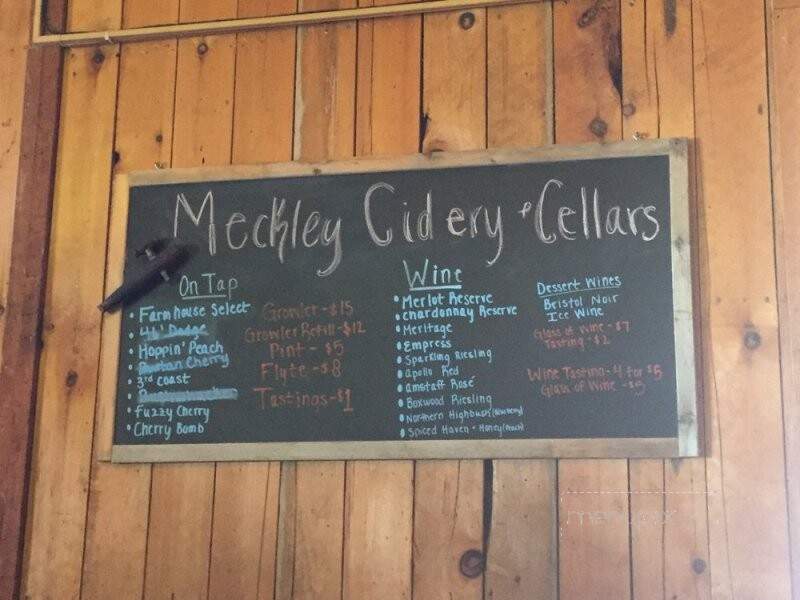 Meckley Cidery & Cellars
On Tap
• Farmhouse Select
• Dodge
• Hoppin' Peach
• Cherry
• 3rd Coast
•
• Fuzzy Cherry
• Cherry Bomb
Growler - $15
Growler Refill - $12
Pint - $5
Flyte - $8
Tastings - $1
Wine
• Merlot Reserve
• Chardonnay Reserve
• Meritage
• Empress
• Sparkling Riesling
• Apollo Red
• Amstaff Rosé
• Boxwood Riesling
• Northern Highbush (Blueberry)
• Spiced Haven - Honey (Peach)
Dessert Wines
Bristol Noir
Ice Wine
Glass of Wine - $7
Tasting - $2
Wine Tasting - 4 for $5
Glass of Wine - $5